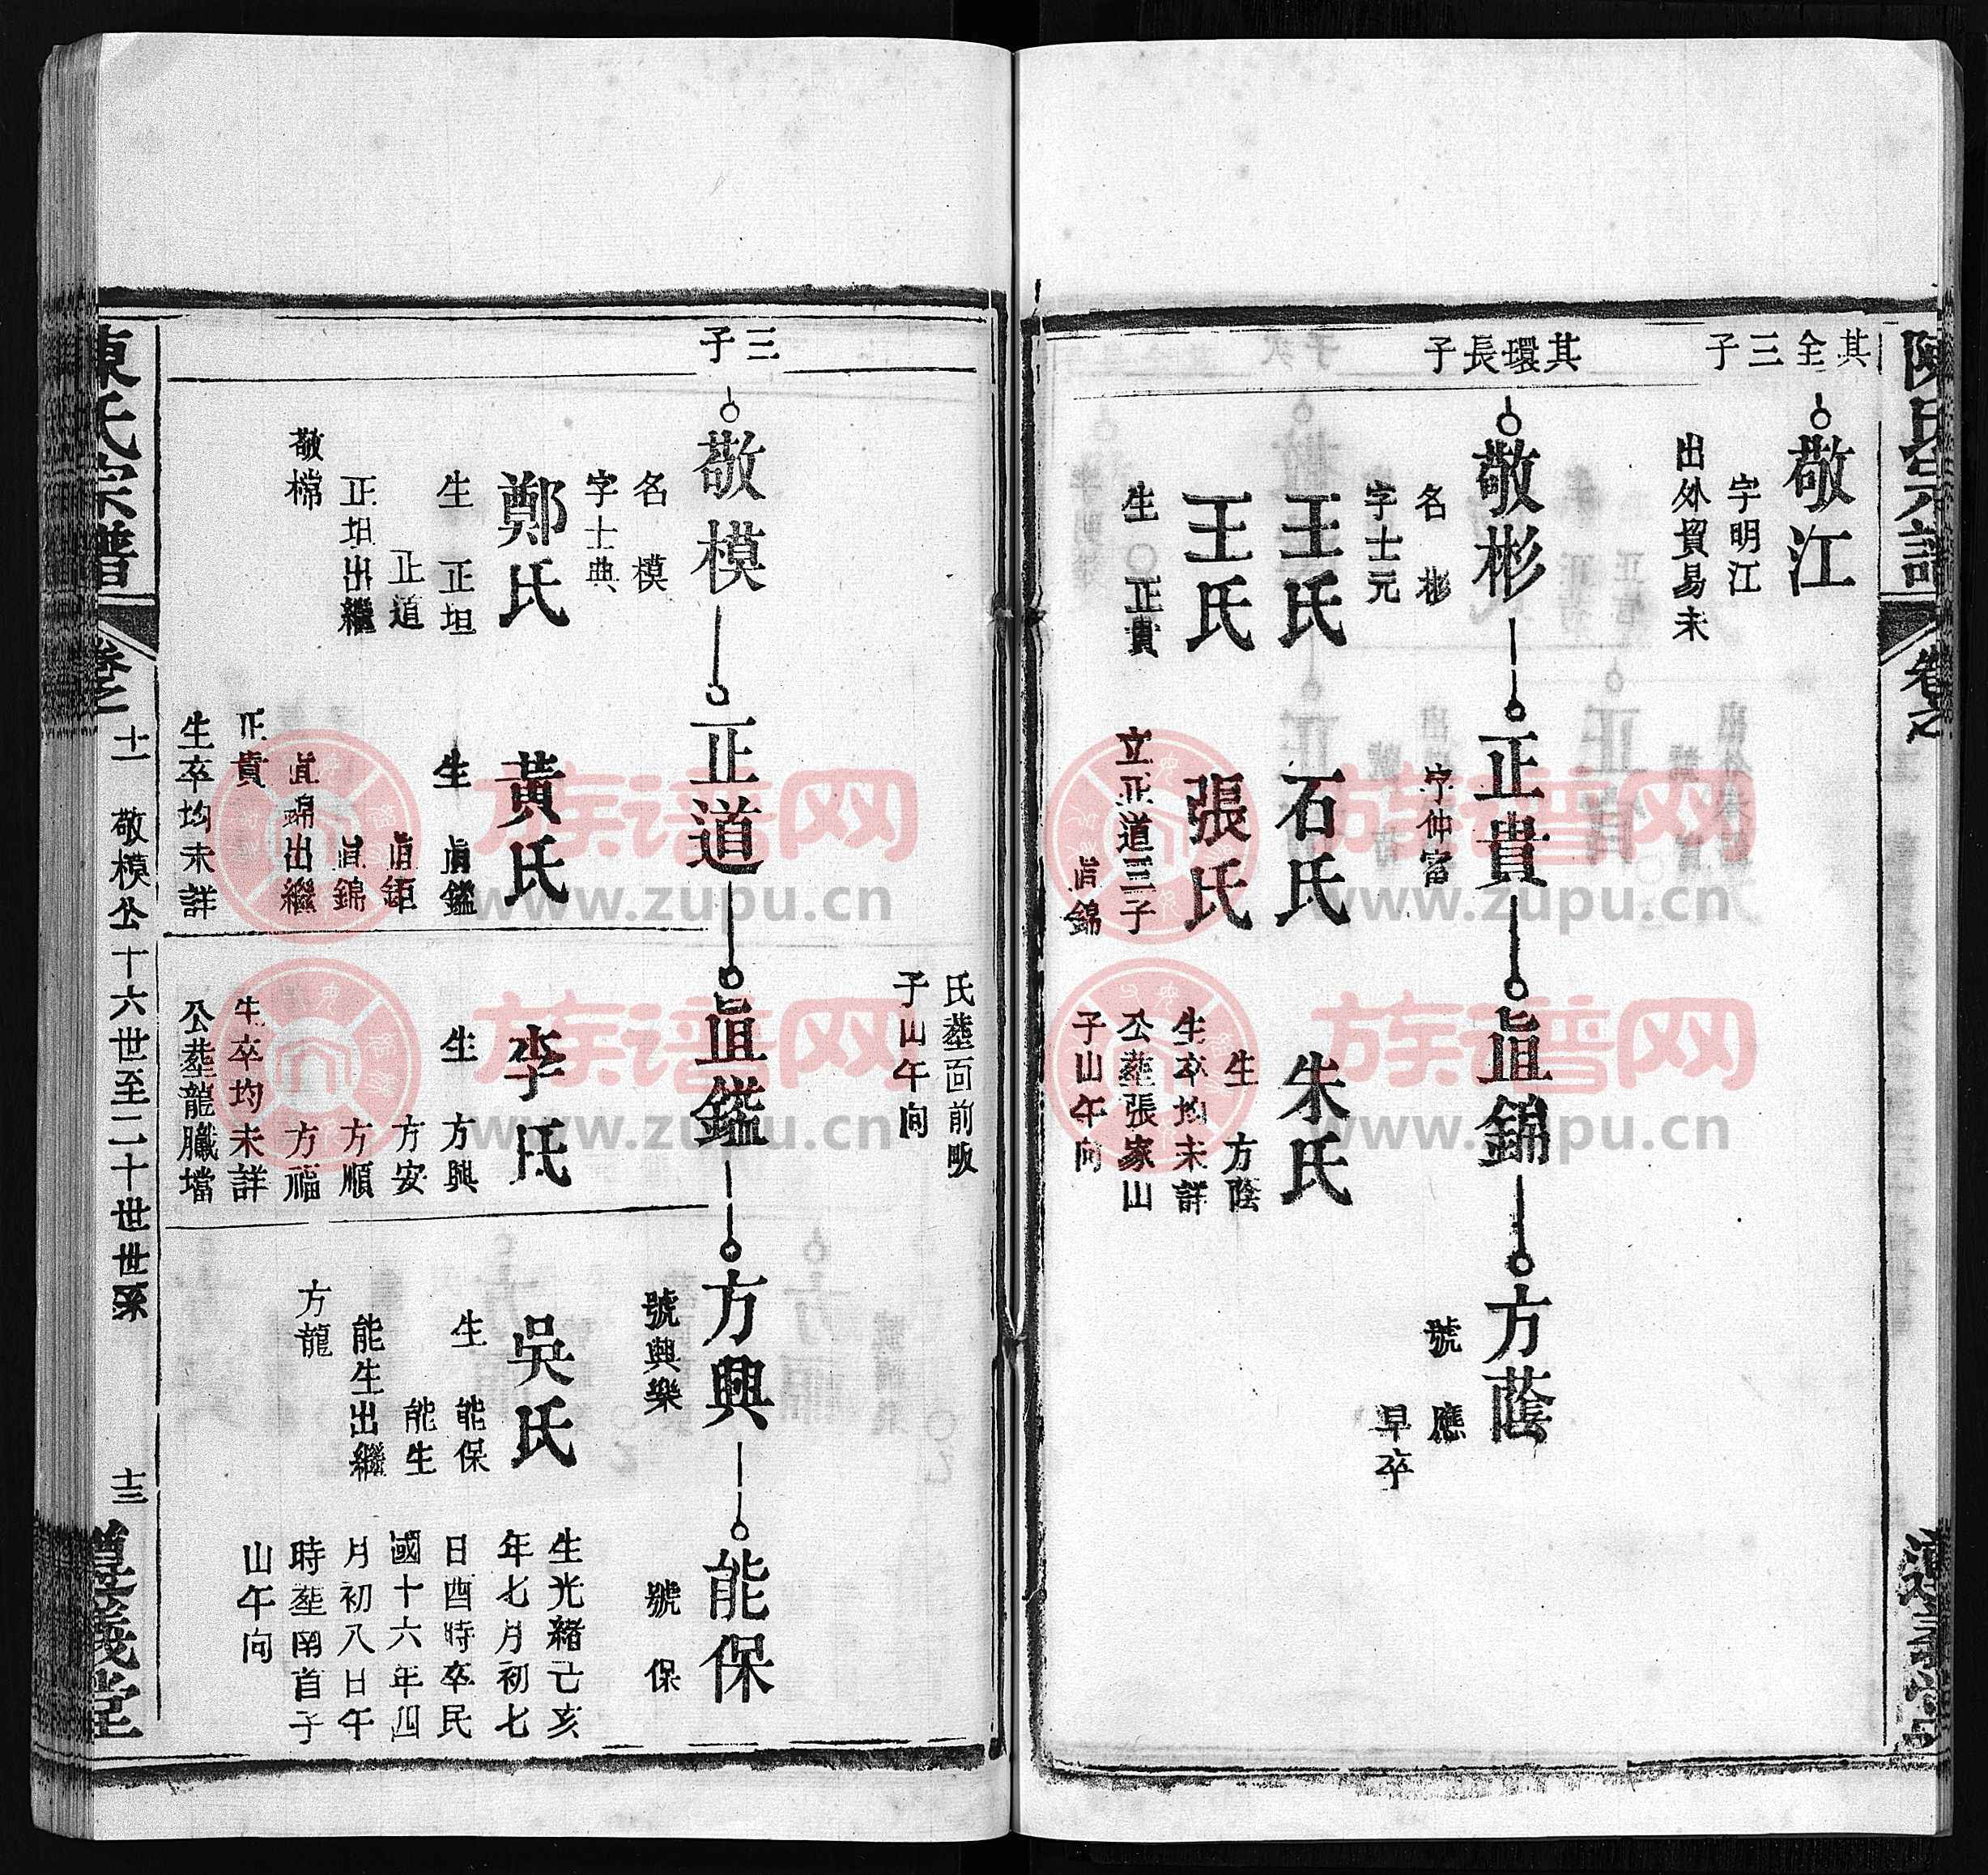 陳氏宗譜
卷之
其全三子
敬江
字明江
出外貿易未
其環長子
敬彬
名彬
字士元
王氏
王氏
生〇正貴
正貴
字仲富
石氏
張氏
立正道三子
眞錦
眞錦
朱氏
生方蔭
生卒均未詳
公塟張家山
子山午向
方蔭
號應
早卒
氏塟面前畈
子山午向
三子
敬模
名模
字士典
鄭氏
生正坦
正道
正坦出繼
敬棉
正道
黃氏
生眞鑑
眞鉅
眞錦
眞錦出繼
正貴
生卒均未詳
眞鑑
李氏
生方興
方安
方順
方福
生卒均未詳
公塟龍臟壋
方興
號興樂
吳氏
生能保
能生
能生出繼
方龍
能保
號保
生光緒己亥
年七月初七
日酉時卒民
國十六年四
月初八日午
時塟南首子
山午向
陳氏宗譜
卷之二
十一
敬模公十六世至二十世世系
十三
義堂
族谱网
www.zupu.cn
族谱网
www.zupu.cn
族谱网
www.zupu.cn
族谱网
www.zupu.cn